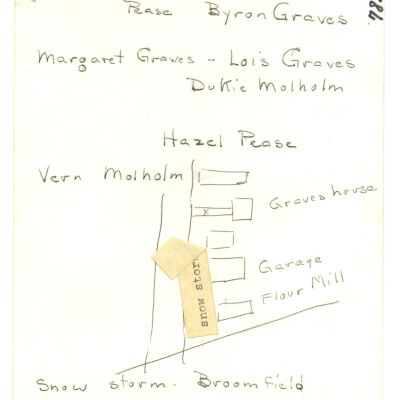 Pease Byron Graves
Margaret Graves - Lois Graves
Dukie Molholm
Hazel Pease
Vern Molholm
Graves house
x
snow stor
Garage
Flour Mill
Snow storm - Broomfield